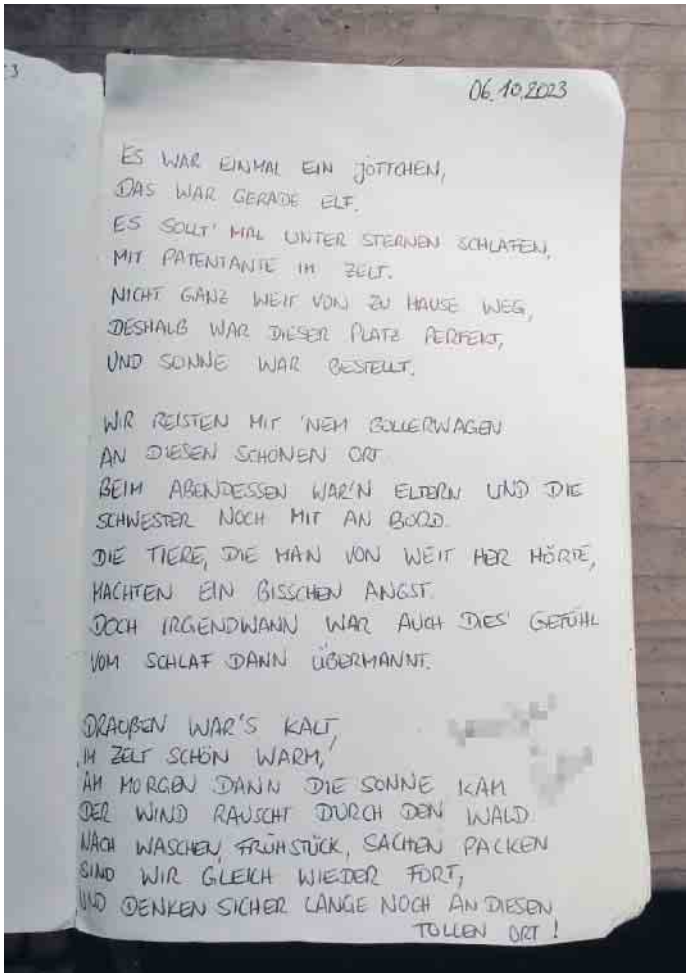 06.10.2023
ES WAR EINMAL EIN JÖTTCHEN,
DAS WAR GERADE ELF.
ES SOLLT' MAL UNTER STERNEN SCHLAFEN,
MIT PATENTANTE IM ZELT.
NICHT GANZ WEIT VON ZU HAUSE WEG,
DESHALB WAR DIESER PLATZ PERFEKT,
UND SONNE WAR BESTELLT.
WIR REISTEN MIT 'NEM BOLLERWAGEN
AN DIESEN SCHÖNEN ORT.
BEIM ABENDESSEN WAR'N ELTERN UND DIE
SCHWESTER NOCH MIT AN BORD.
DIE TIERE, DIE MAN VON WEIT HER HÖRTE,
MACHTEN EIN BISSCHEN ANGST.
DOCH IRGENDWANN WAR AUCH DIES' GEFÜHL
VOM SCHLAF DANN ÜBERMANNT.
DRAUßEN WAR'S KALT,
IM ZELT SCHÖN WARM,
AM MORGEN DANN DIE SONNE KAM
DER WIND RAUSCHT DURCH DEN WALD.
NACH WASCHEN, FRÜHSTÜCK, SACHEN PACKEN
SIND WIR GLEICH WIEDER FORT,
UND DENKEN SICHER LANGE NOCH AN DIESEN
TOLLEN ORT!